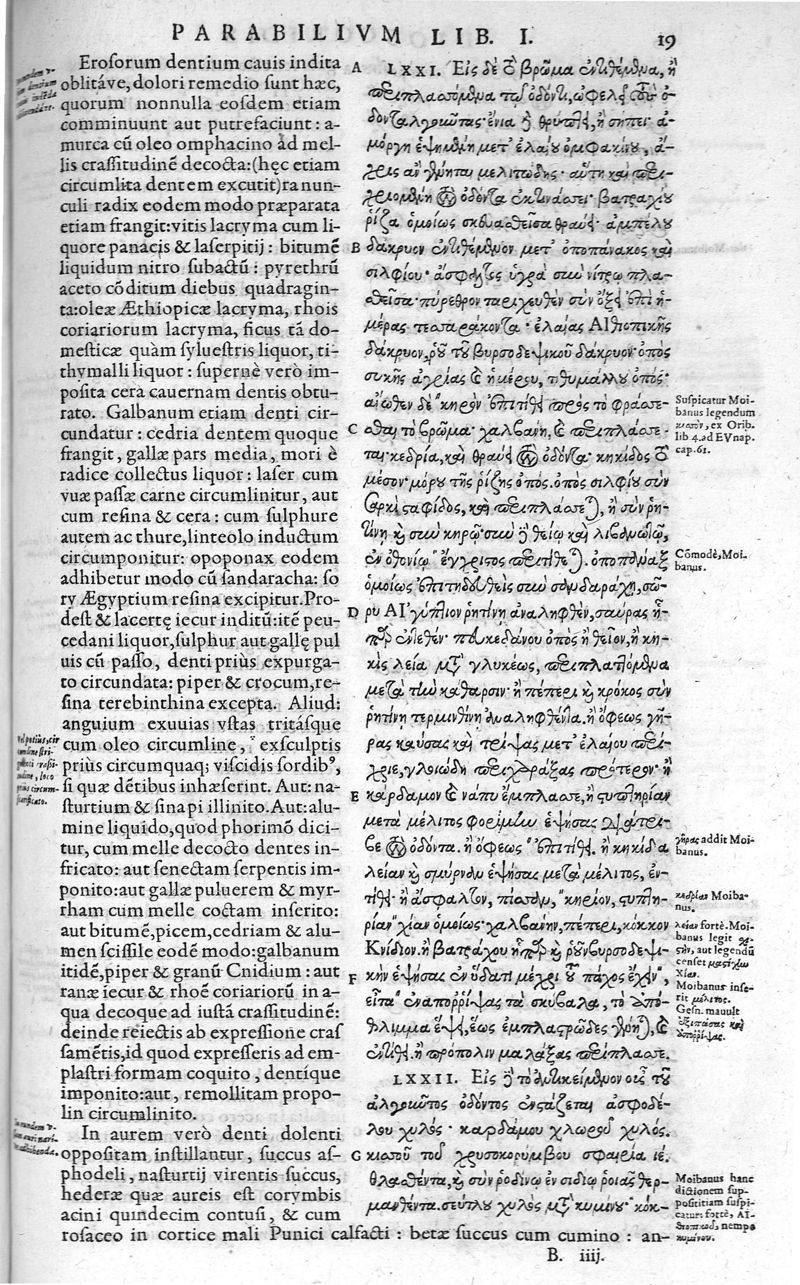 PARABILIVM LIB. I. 19
Erosorum dentium cauis indita
oblitáve, dolori remedio sunt hæc,
quorum nonnulla eosdem etiam
comminuunt aut putrefaciunt: a-
murca cū oleo omphacino ad mel-
lis crassitudinē decocta: (hęc etiam
circumlita dentem excutit) ranun-
culi radix eodem modo præparata
etiam frangit: vitis lacryma cum li-
quore panacis & laserpitij: bitumē
liquidum nitro subactū: pyrethrū
aceto cōditum diebus quadragin-
ta: oleæ Æthiopicæ lacryma, rhois
coriariorum lacryma, ficus tā do-
mesticæ quàm syluestris liquor, ti-
thymalli liquor: supernè verò im-
posita cera cauernam dentis obtu-
rato. Galbanum etiam denti cir-
cundatur: cedria dentem quoque
frangit, gallæ pars media, mori è
radice collectus liquor: laser cum
vuæ passæ carne circumlinitur, aut
cum resina & cera: cum sulphure
autem ac thure, linteolo inductum
circumponitur: opoponax eodem
adhibetur modo cū sandaracha: so
ry Ægyptium resina excipitur. Pro-
dest & lacertę iecur inditū: itē peu-
cedani liquor, sulphur aut gallę pul
uis cū passo, denti priùs expurga-
to circundata: piper & crocum, re-
sina terebinthina excepta. Aliud:
anguium exuuias vstas tritásque
cum oleo circumline, exsculptis
priùs circumquaq; viscidis sordibꝰ,
si quæ dētibus inhæserint. Aut: na-
sturtium & sinapi illinito. Aut: alu-
mine liquido, quod phorimō dici-
tur, cum melle decocto dentes in-
fricato: aut senectam serpentis im-
ponito: aut gallæ puluerem & myr-
rham cum melle coctam inserito:
aut bitumē, picem, cedriam & alu-
men scissile eodē modo: galbanum
itidē, piper & granū Cnidium: aut
ranæ iecur & rhoē coriariorū in a-
qua decoque ad iustā crassitudinē:
deinde reiectis ab expressione cras
samētis, id quod expresseris ad em-
plastri formam coquito, dentíque
imponito: aut, remollitam propo-
lin circumlinito.
In aurem verò denti dolenti
oppositam instillantur, succus as-
phodeli, nasturtij virentis succus,
hederæ quæ aureis est corymbis
acini quindecim contusi, & cum
rosaceo in cortice mali Punici calfacti: betæ succus cum cumino: an-
A LXXI. Εἰς δὲ τὸ βρῶμα ἐντιθέμενα, ἢ
περιπλασσόμενα τῷ ὀδόντι, ὠφελεῖ τοὺς ὀ-
δονταλγιῶντας· ἔνια ἢ θρύπτει, ἢ σήπει· ἀ-
μόργη ἑψημένη μετ' ἐλαίου ὀμφακίνου, ἄ-
χρις ἂν γένηται μελιτώδης· αὕτη καὶ περι-
χριομένη τὸν ὀδόντα ἐκτινάσσει· βατραχίου
ῥίζα ὁμοίως σκευασθεῖσα θραύει· ἀμπέλου
B δάκρυον ἐντιθέμενον μετ' ὀποπάνακος καὶ
σιλφίου· ἄσφαλτος ὑγρὰ σὺν νίτρῳ πλα-
σθεῖσα· πύρεθρον ταριχευθὲν σὺν ὄξει ἐπὶ ἡ-
μέρας τεσσαράκοντα· ἐλαίας Αἰθιοπικῆς
δάκρυον, ῥοῦ τοῦ βυρσοδεψικοῦ δάκρυον· ὀπὸς
συκῆς ἀγρίας καὶ ἡμέρου, τιθυμάλλου ὀπός·
ἄνωθεν δὲ κηρὸν ἐπιτίθει πρὸς τὸ φράσσε-
C σθαι τὸ βρῶμα· χαλβάνη, καὶ περιπλάσσε-
ται· κεδρία, καὶ θραύει τὸν ὀδόντα· κηκῖδος τὸ
μέσον· μόρου τῆς ῥίζης ὀπός· ὀπὸς σιλφίου σὺν
σαρκὶ σταφίδος, καὶ περιπλάσσεται, ἢ σὺν ῥη-
τίνῃ καὶ σὺν κηρῷ· σὺν ἢ θείῳ καὶ λιβανωτῷ,
ἐν ὀθονίῳ ἔγχριτος περιτίθεται. ὀποπάναξ
ὁμοίως ἐπιτηδευθεὶς σὺν σανδαράχῃ, σῶ-
D ρυ ΑΙγύπτιον ῥητίνῃ ἀναληφθέν, σαύρας ἧ-
παρ ἐντεθέν· πευκεδάνου ὀπὸς ἢ θεῖον, ἢ κη-
κὶς λεία μετὰ γλυκέως, περιπλαττόμενα
μετὰ τὴν κάθαρσιν· ἢ πέπερι καὶ κρόκος σὺν
ῥητίνῃ τερμινθίνῃ ἀναληφθέντα. ἢ ὄφεως γῆ-
ρας καύσας καὶ τρίψας μετ' ἐλαίου περί-
χριε, γλοιώδη περιχαράξας πρότερον· ἢ
E κάρδαμον καὶ νάπυ ἔμπλασσε, ἢ στυπτηρίαν
μετὰ μέλιτος φορίμην ἑψήσας διάτρι-
βε τὸν ὀδόντα. ἢ ὄφεως ἐπιτίθει. ἢ κηκῖδα
λείαν καὶ σμύρναν ἑψήσας μετὰ μέλιτος, ἐν-
τίθει· ἢ ἄσφαλτον, πίσσαν, κηρίον, στυπτη-
ρίαν χίαν ὁμοίως· χαλβάνην, πέπερι, κόκκον
Κνίδιον. ἢ βατράχου ἧπαρ καὶ ῥοῦν βυρσοδεψι-
F κὴν ἑψήσας ἐν ὕδατι μέχρι τοῦ πάχος ἔχειν,
εἶτα ἐναπορρίψας τὰ σκύβαλα, τὸ ἀπό-
θλιμμα ἕψει, ἕως ἐμπλαστρῶδες γένηται, καὶ
ἐντίθει· ἢ πρόπολιν μαλάξας περίπλασσε.
LXXII. Εἰς ἢ τὸ ἀντικείμενον οὖς τοῦ
ἀλγοῦντος ὀδόντος ἐνστάζεται ἀσφοδέ-
λου χυλός· καρδάμου χλωροῦ χυλός.
G κισσοῦ τοῦ χρυσοκορύμβου σφαιρία ιέ.
θλασθέντα, καὶ σὺν ῥοδίνῳ ἐν σιδίῳ ῥοιᾶς θερ-
μανθέντα. σεύτλου χυλὸς μετὰ κυμίνου· κόκ-
Suspicatur Moi-
banus legendum
κισσόν, ex Orib.
lib 4. ad EVnap.
cap. 61.
Cōmodè, Moi-
banus.
γῆρας addit Moi-
banus.
κεδρίαν Moiba-
nus.
λείαν fortè. Moi-
banus legit
aut legendū
censet μαστίχην
χίαν.
Moibanus inse-
rit μέλιτος.
Gesn. mauult
ἐξιπώσας καὶ
ἀπορρίψας.
Moibanus hanc
dictionem sup-
posititiam suspi-
catur: fortè, AI-
θιοπικοῦ, nempe
κυμίνου.
B. iiij.